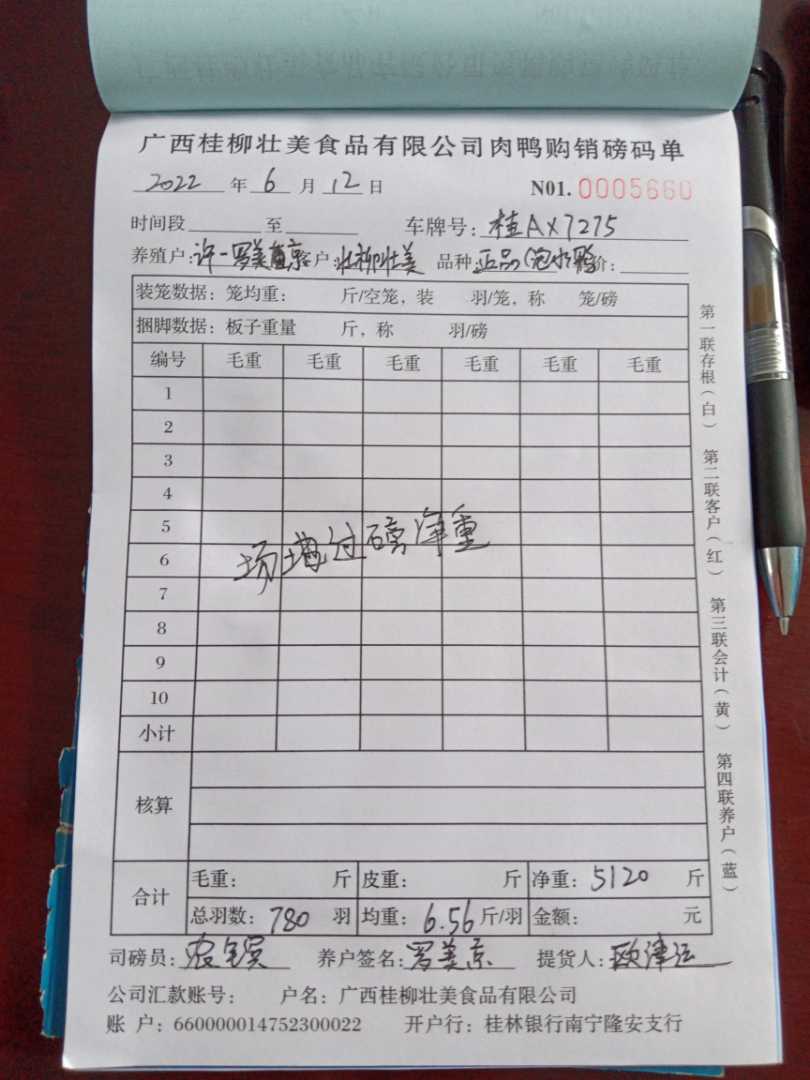 广西桂柳壮美食品有限公司肉鸭购销磅码单
2022 年 6 月 12 日 N01. 0005660
时间段 至 车牌号: 桂AX7275
养殖户: 许一罗美京 客户: 桂柳壮美 品种: 正品 价:
装笼数据: 笼均重: 斤/空笼, 装 羽/笼, 称 笼/磅
捆脚数据: 板子重量 斤, 称 羽/磅
编号 毛重 毛重 毛重 毛重 毛重 毛重
1
2
3
4
5
6
7
8
9
10
场地过磅净重
小计
核算
合计 毛重: 斤 皮重: 斤 净重: 5120 斤
总羽数: 780 羽 均重: 6.56 斤/羽 金额: 元
司磅员: 养户签名: 罗美京 提货人: 欧津
公司汇款账号: 户名: 广西桂柳壮美食品有限公司
账 户: 660000014752300022 开户行: 桂林银行南宁隆安支行
第一联存根(白) 第二联客户(红) 第三联会计(黄) 第四联养户(蓝)